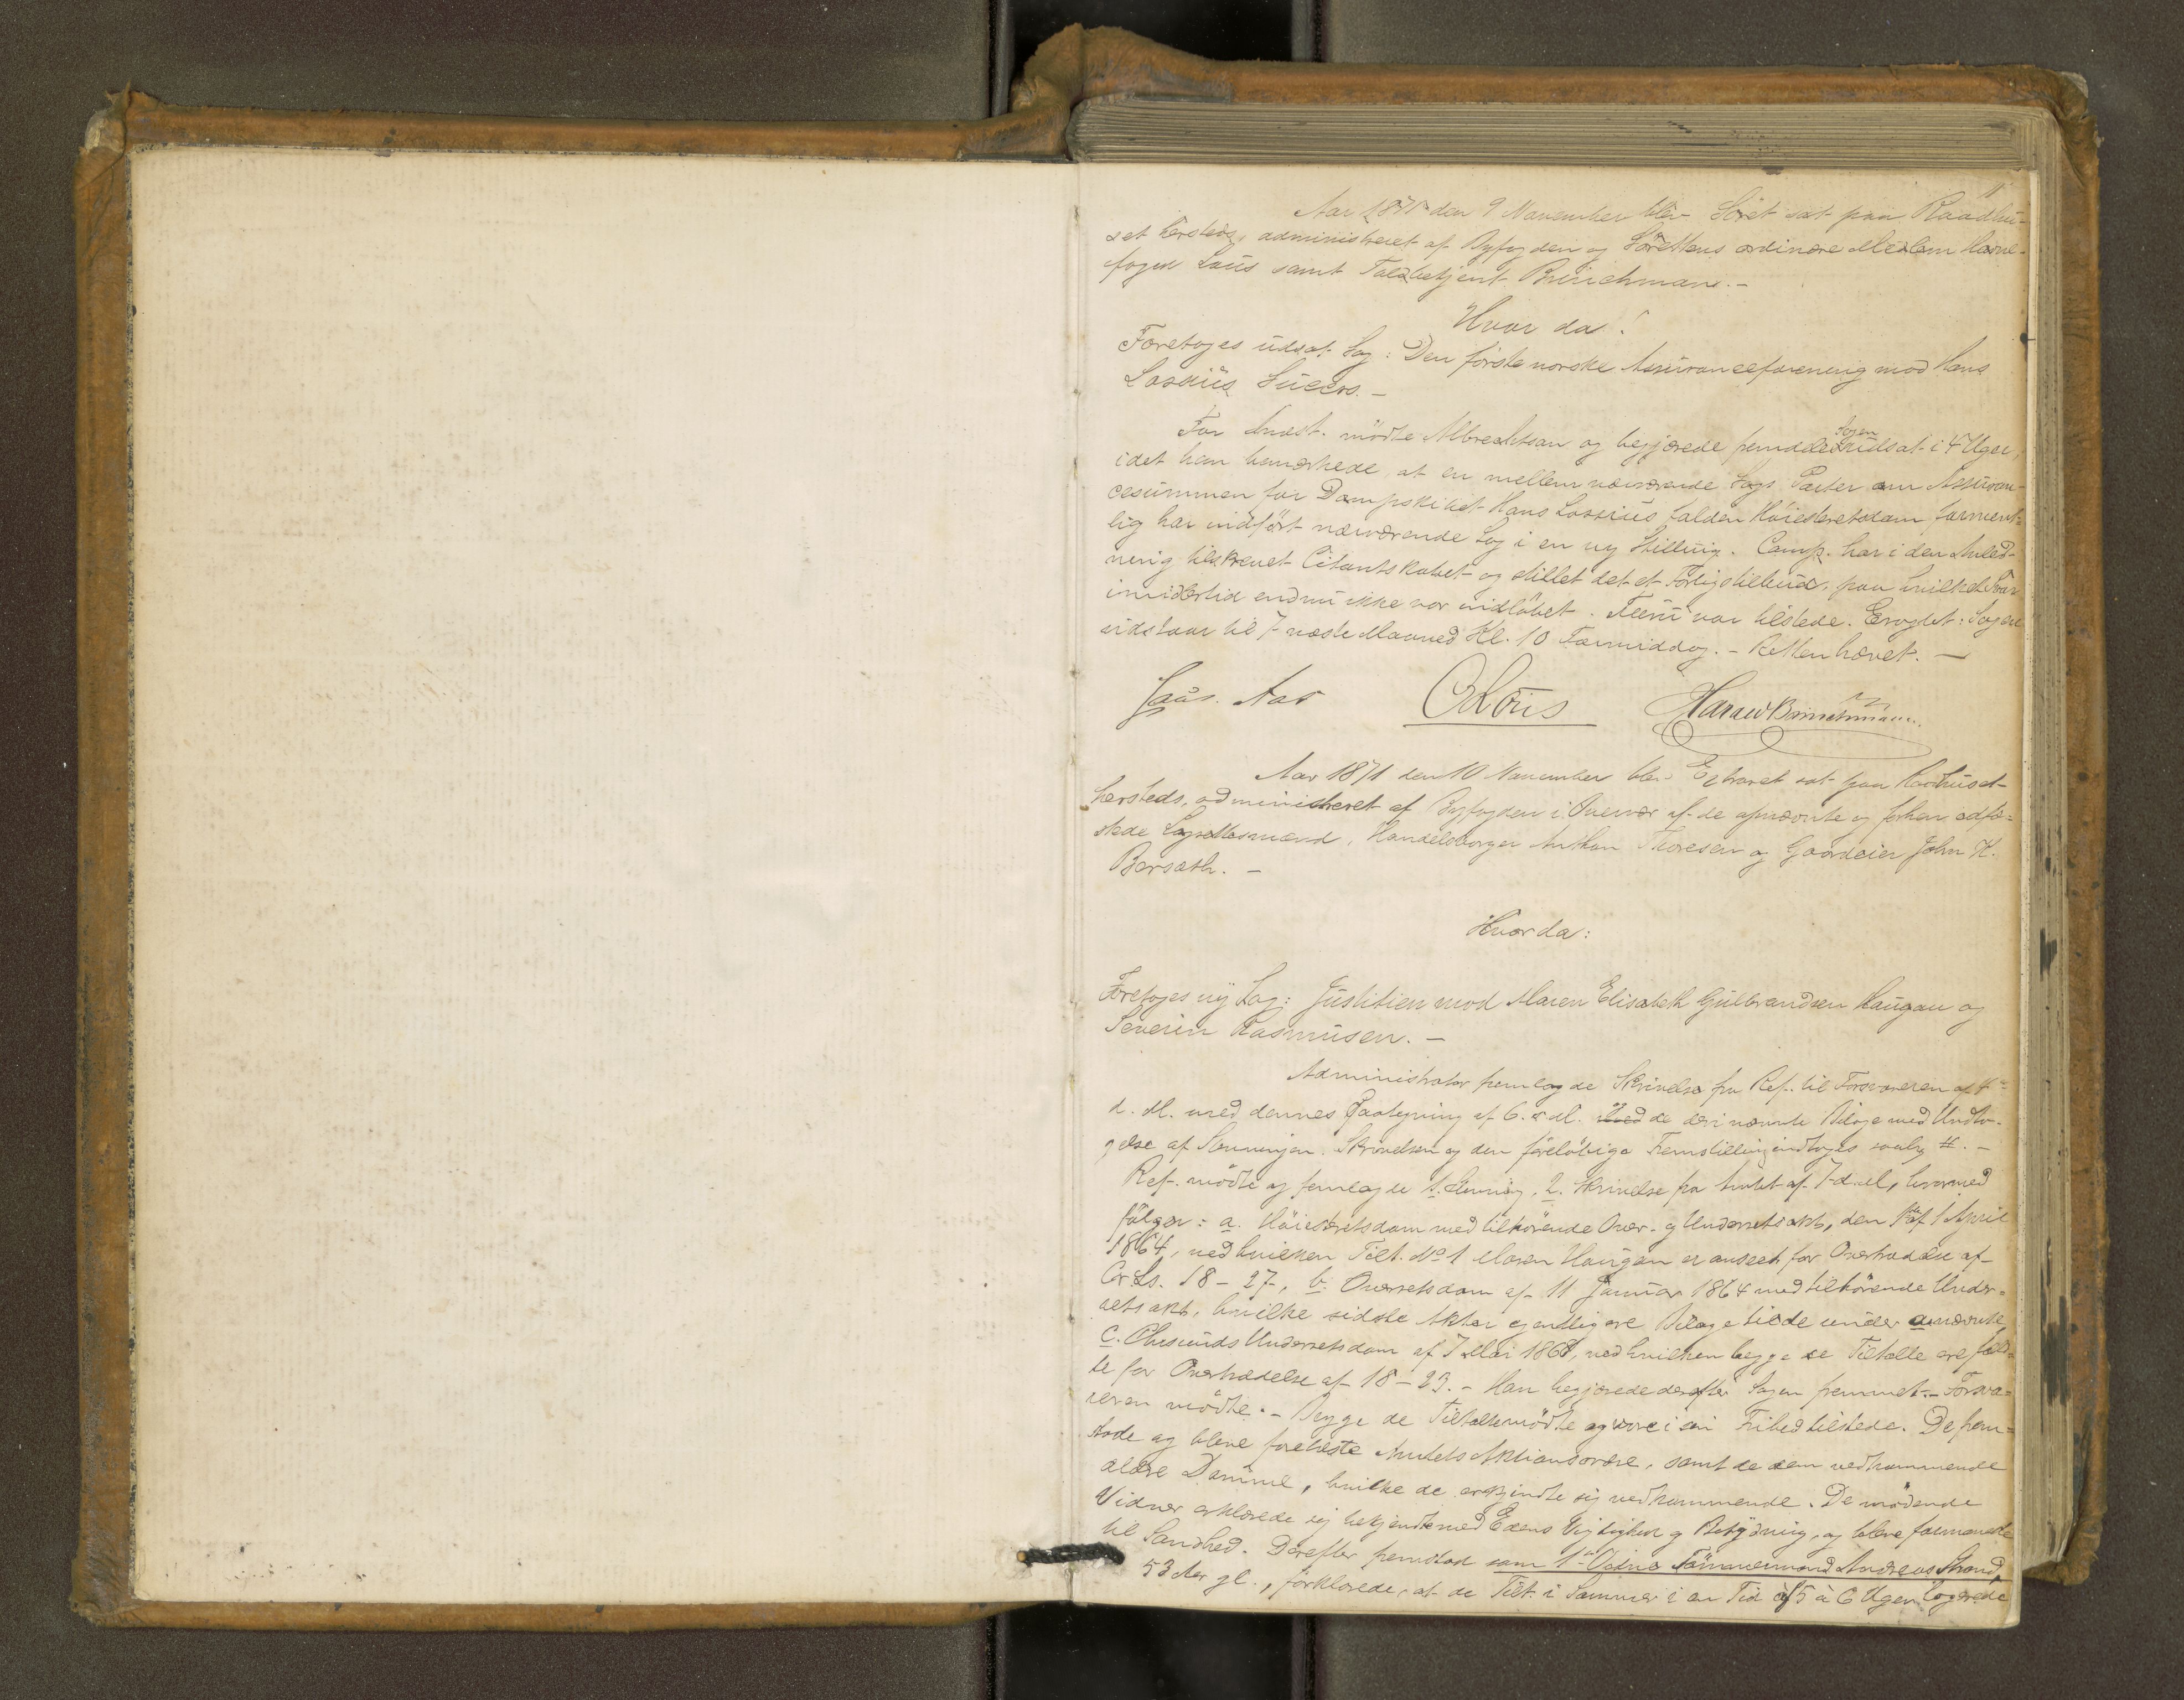 1
Aar 1871 den 9 November blev Söret sat paa Raadhu-
set hersteds, administreret af Byfogden og Sörettens ordinære Medlem Havne-
foged Loüs samt Toldbetjent Brinchmann. -
Hvor da!
Foretoges udsat Sag: Den förste norske Assuranceforening mod Hans
Lossius Succrs. -
For Indst. mödte Albrechtsen og begjærede fremdeles Sagen udsat i 4 Uger,
idet han bemærkede, at en mellem nærværende Sags Parter om Assuran-
cesummen for Dampskibet Hans Lossius falden Höiesteretsdom forment-
lig har indfört nærværende Sag i en ny Stilling. Comp. har i den Anled-
ning tilskrevet Citantskabet og stillet det et Forligstilbud, paa hvilket Svar
imidlertid endnu ikke var indlöbet. var tilstede. Eragtet: Sagen
udstaar til 7 næste Maaned Kl. 10 Formiddag. - Retten hævet. -
Aar 1871 den 10 November blev Extraret sat paa Raadhuset
hersteds, administreret af Byfogden i Overvær af de opnævnte og forhen edfæ-
stede Lagrettesmænd, Handelsborger Anthon Thoresen og Gaardeier John K.
Barsath. -
Hvorda:
Foretoges ny Sag: Justitien mod Maren Elisabeth Gulbrandsen Haugan og
Severin Rasmusen. -
Administrator fremlagde Skrivelse fra Ref. til Forsvareren af 4de
d. M. med dennes Paategning af 6. d. M. Med de deri nævnte Bilage med Undta-
gelse af Stevningen. Skrivelsen og den foreløbige Fremstilling indtages saalyd. #. -
Ref. mödte og fremlagde 1. Stevning, 2. Skrivelse fra Amtet af 7 d. M., hvormed
fölger: a. Höiesteretsdom med tilhörende Over- og Underretsakt, den 1ste af 1 April
1864, ved hvilken Tilt. No 1 Maren Haugan er anseet for Overtrædelse af
Cr. Ls. 18 - 27, b. Overretsdom af 11 Januar 1864 med tilhörende Under-
retsakt, hvilke sidste Akter egentligere Bilage til de under a nævnte,
c. Aalesunds Underretsdom af 7 Mai 1868, ved hvilken begge de Tiltalte ere fæld-
te for Overtrædelse af 18 - 23. - Han begjærede derefter Sagen fremmet. - Forsva-
reren mödte. - Begge de Tiltalte mödte og vare i sin Frihed tilstede. De frem-
stode og bleve forelæste Amtets Aktionsordre, samt de dem vedkommende
ældre Domme, hvilke de erkjendte sig vedkommende. De mödende
Vidner erklærede sig bekjendte med Edens Vigtighed og Betydning, og bleve formanede
til Sandhed. Derefter fremstod som 1ste Vidne Tömmermand Andreas Strand,
53 Aar gl., forklarede, at de Tilt. i Sommer i en Tid af 5 à 6 Uger logerede